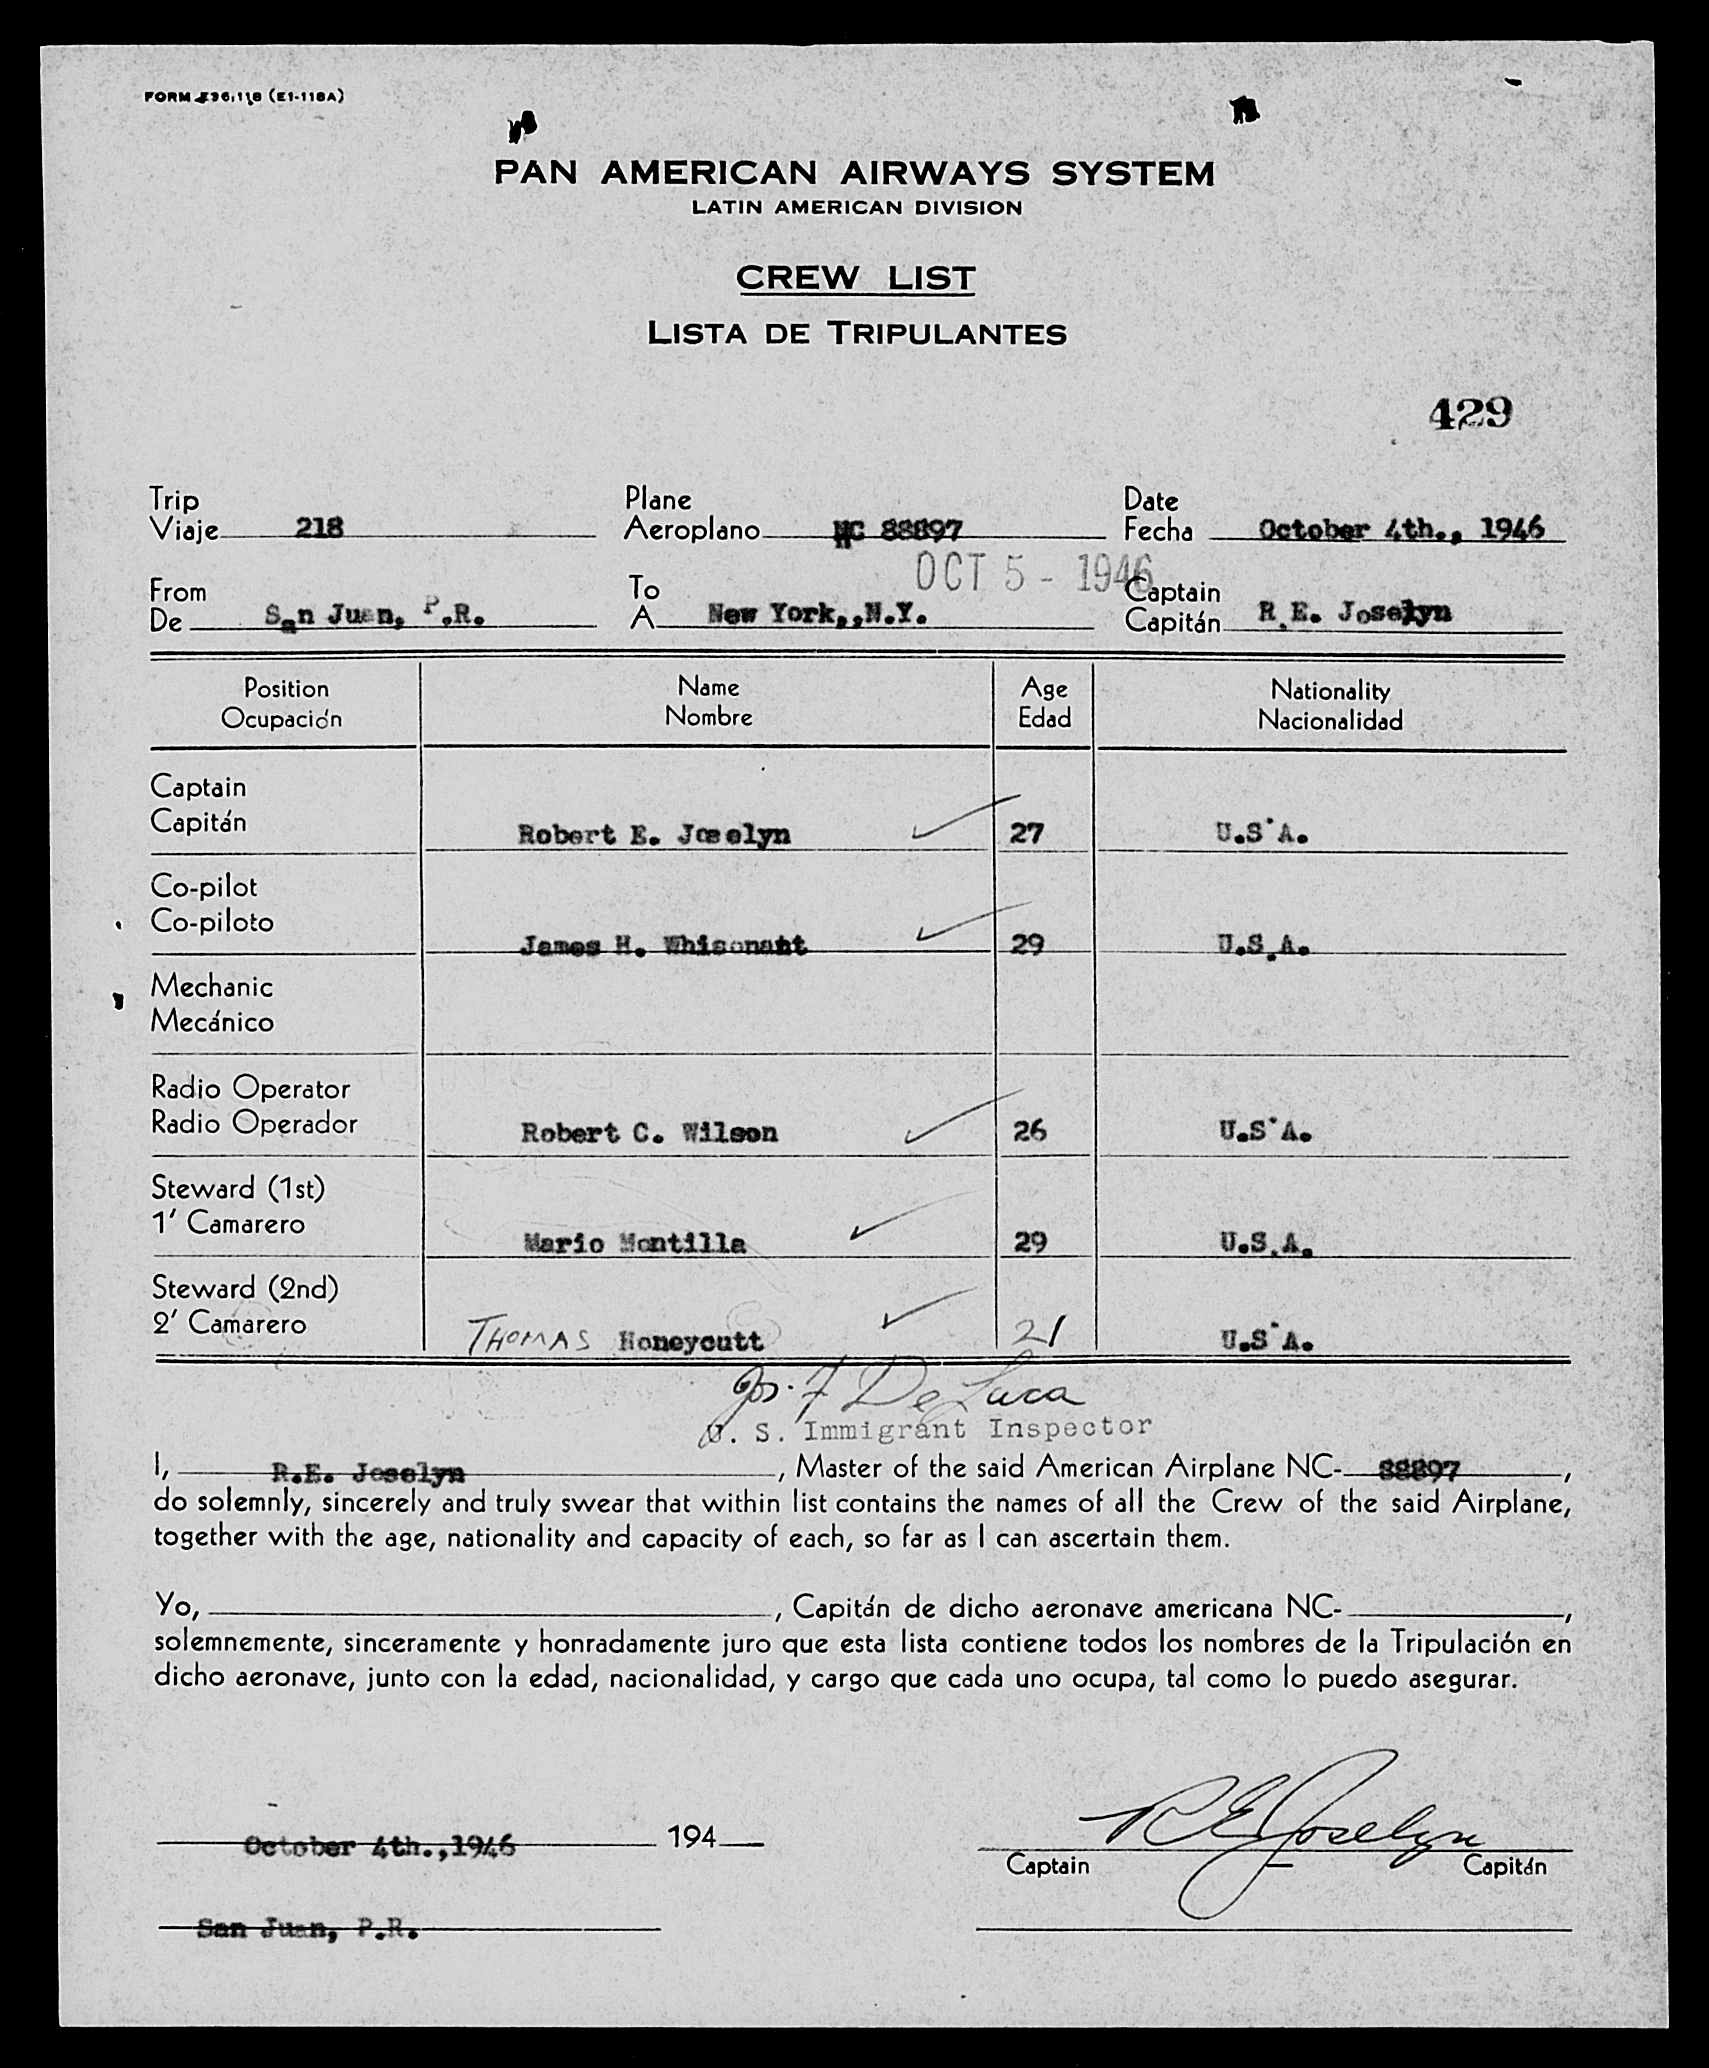 FORM E96.118 (E1-118A)
PAN AMERICAN AIRWAYS SYSTEM
LATIN AMERICAN DIVISION
CREW LIST
LISTA DE TRIPULANTES
429
Trip Plane Date
Viaje 218 Aeroplano NC 88897 Fecha October 4th., 1946
OCT 5 - 1946
From To Captain
De San Juan, P.R. A New York,,N.Y. Capitán R.E. Joselyn
Position Name Age Nationality
Ocupación Nombre Edad Nacionalidad
Captain
Capitán Robert E. Joselyn 27 U.S.A.
Co-pilot
Co-piloto James H. Whisonant 29 U.S.A.
Mechanic
Mecánico
Radio Operator
Radio Operador Robert C. Wilson 26 U.S.A.
Steward (1st)
1' Camarero Mario Montilla 29 U.S.A.
Steward (2nd)
2' Camarero THOMAS Honeycutt 21 U.S.A.
Jos. F De Luca
U. S. Immigrant Inspector
I, R.E. Joselyn, Master of the said American Airplane NC- 88897,
do solemnly, sincerely and truly swear that within list contains the names of all the Crew of the said Airplane,
together with the age, nationality and capacity of each, so far as I can ascertain them.
Yo, , Capitán de dicho aeronave americana NC- ,
solemnemente, sinceramente y honradamente juro que esta lista contiene todos los nombres de la Tripulación en
dicho aeronave, junto con la edad, nacionalidad, y cargo que cada uno ocupa, tal como lo puedo asegurar.
October 4th.,1946 194 R E Joselyn
Captain Capitán
San Juan, P.R.